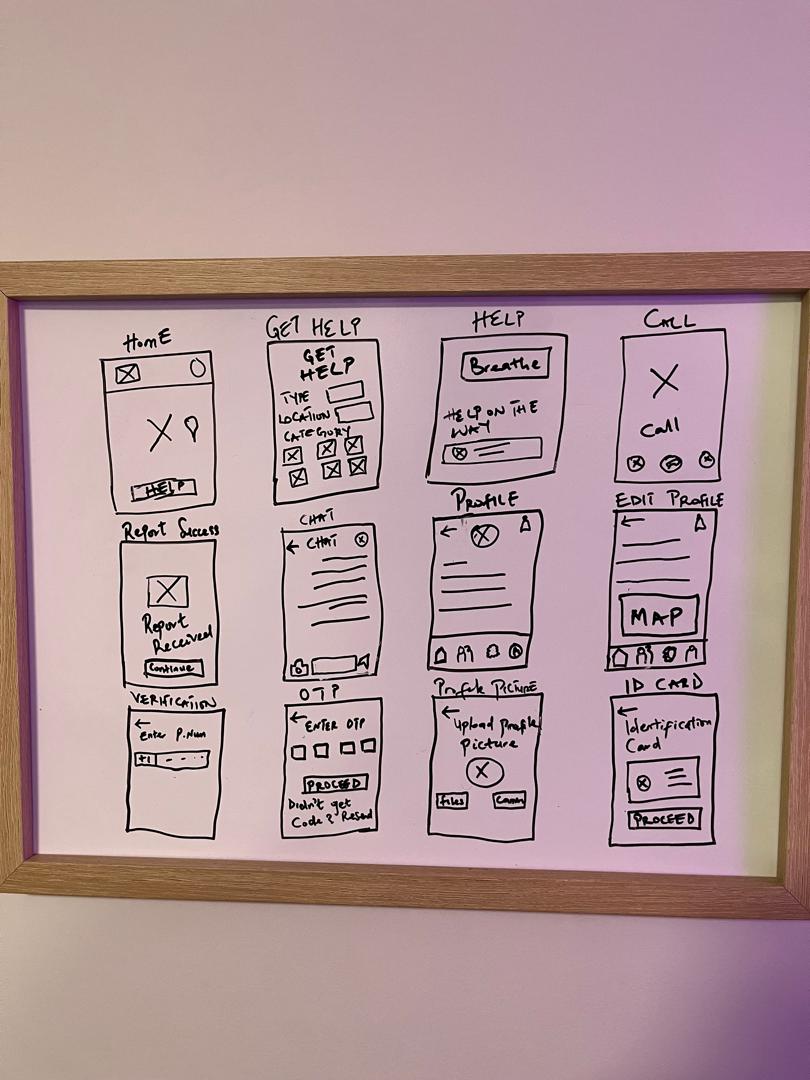 HOME
HELP
GET HELP
GET
HELP
TYPE
LOCATION
CATEGORY
HELP
Breathe
HELP ON THE
WAY
CALL
Call
Report Success
Report
Received
Continue
CHAT
← CHAT
PROFILE
←
EDIT PROFILE
←
MAP
VERIFICATION
←
Enter P.Num
+1 - - - -
OTP
← ENTER OTP
PROCEED
Didn't get
Code? Resend
Profile Picture
←
Upload Profile
Picture
Files
Cam
ID CARD
←
Identification
Card
PROCEED